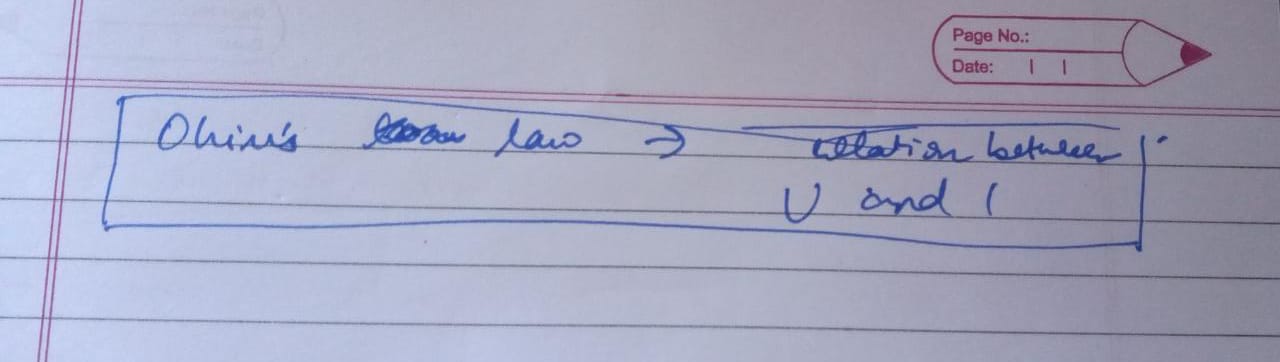 Page No.:
Date:
Ohm's law → relation between
V and I